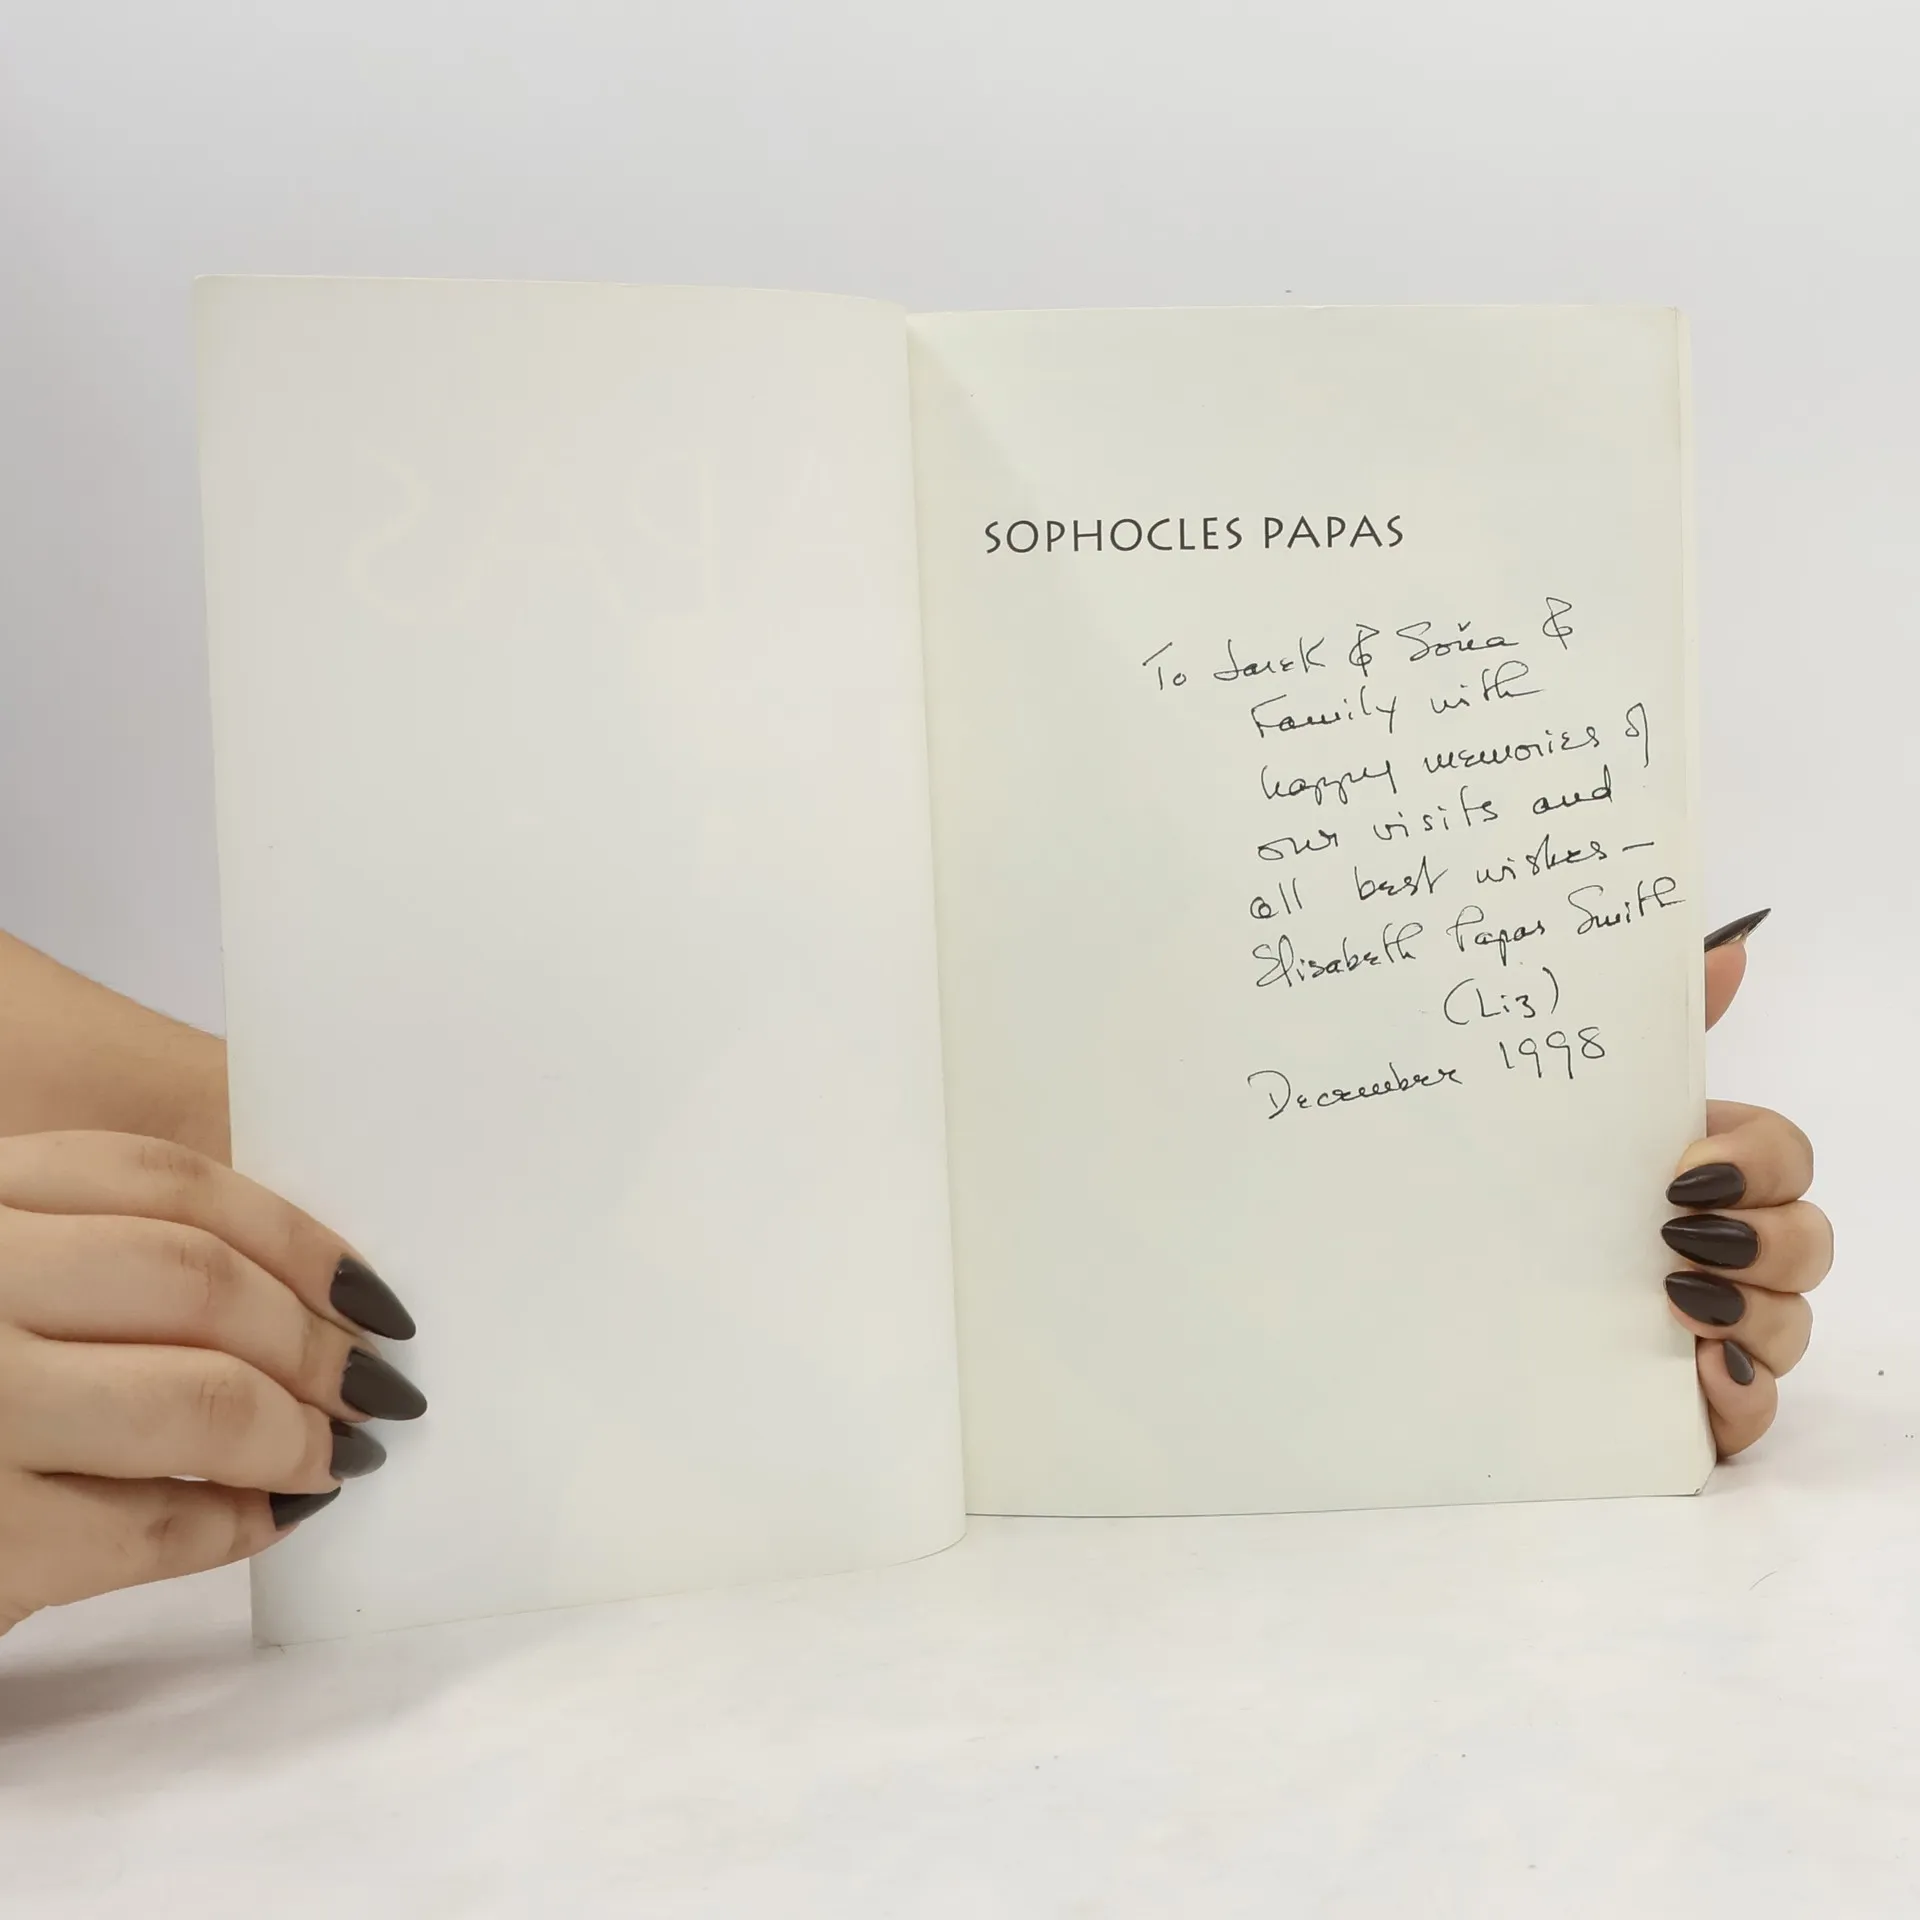 SOPHOCLES PAPAS
To Jarek & Soňa &
Family with
happy memories of
our visits and
all best wishes –
Elisabeth Papas Smith
(Liz)
December 1998